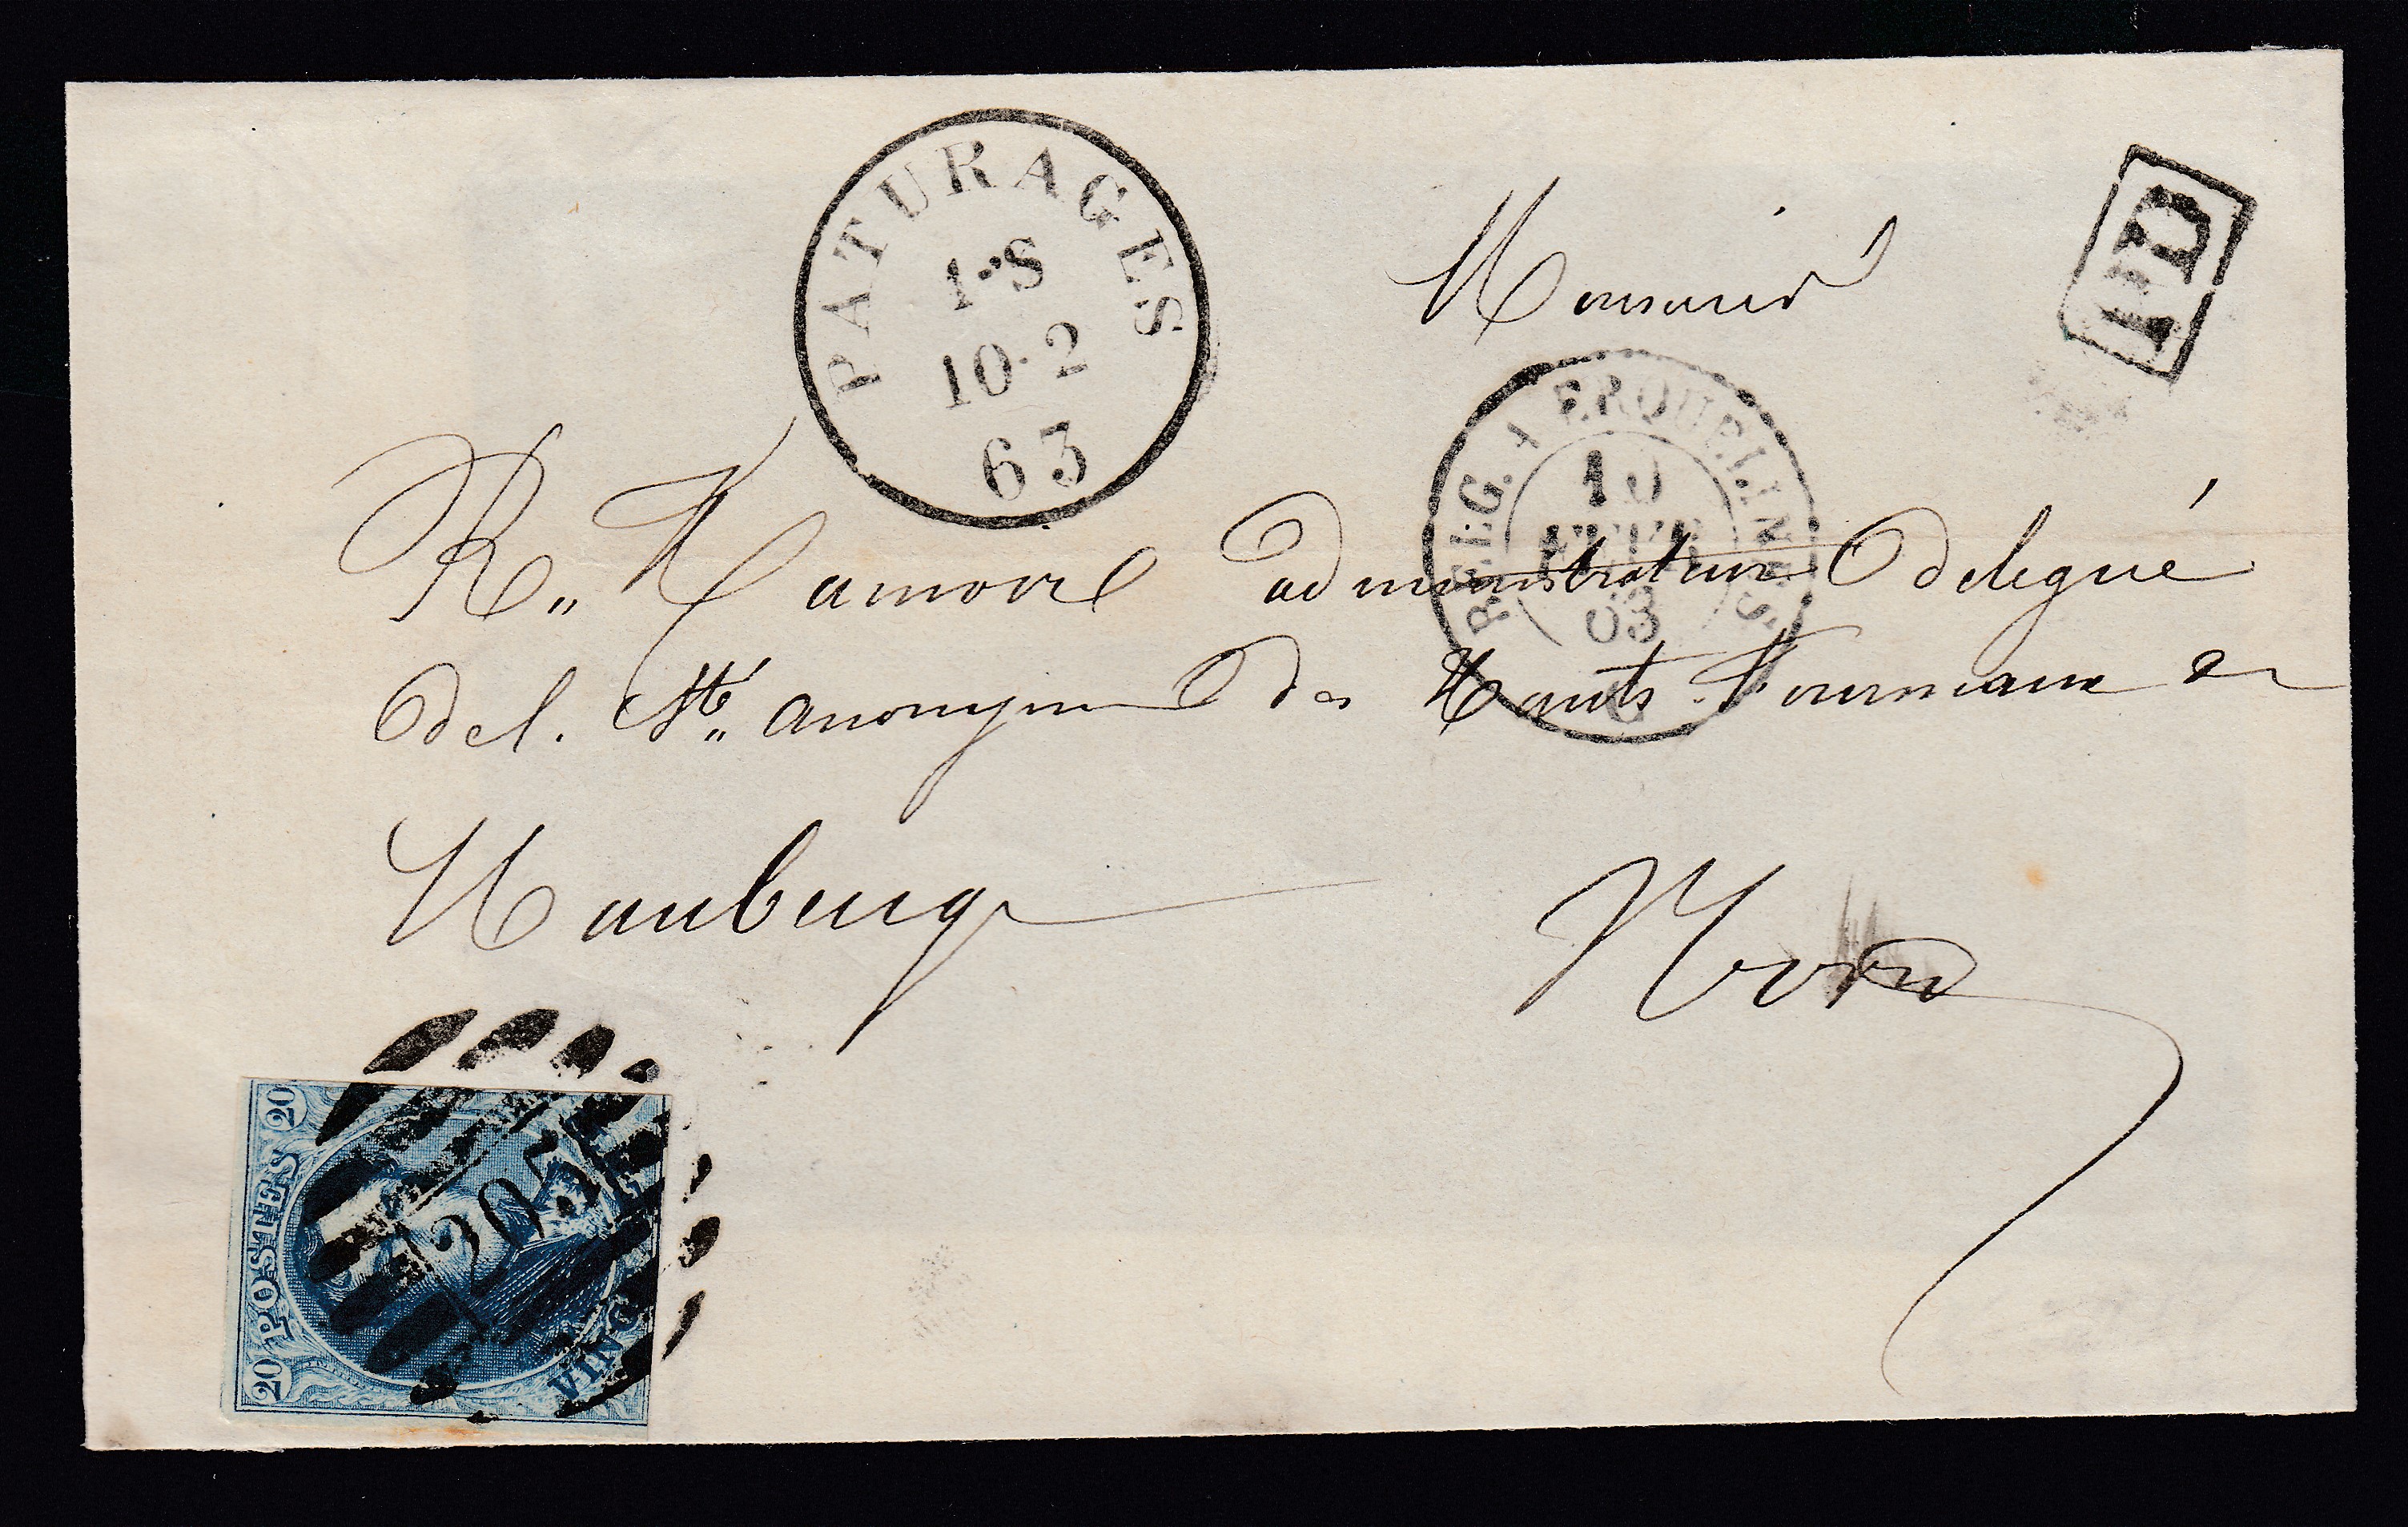 PATURAGES
1-S
10·2
63
PD
Monsieur
BELG. A ERQUELINES
10
FEVR
63
R. Hamoir administrateur délegué
de l. Sté. anonyme des Hauts Fourneaux de
Maubeuge
Nord
20 POSTES 20
203
VINGT